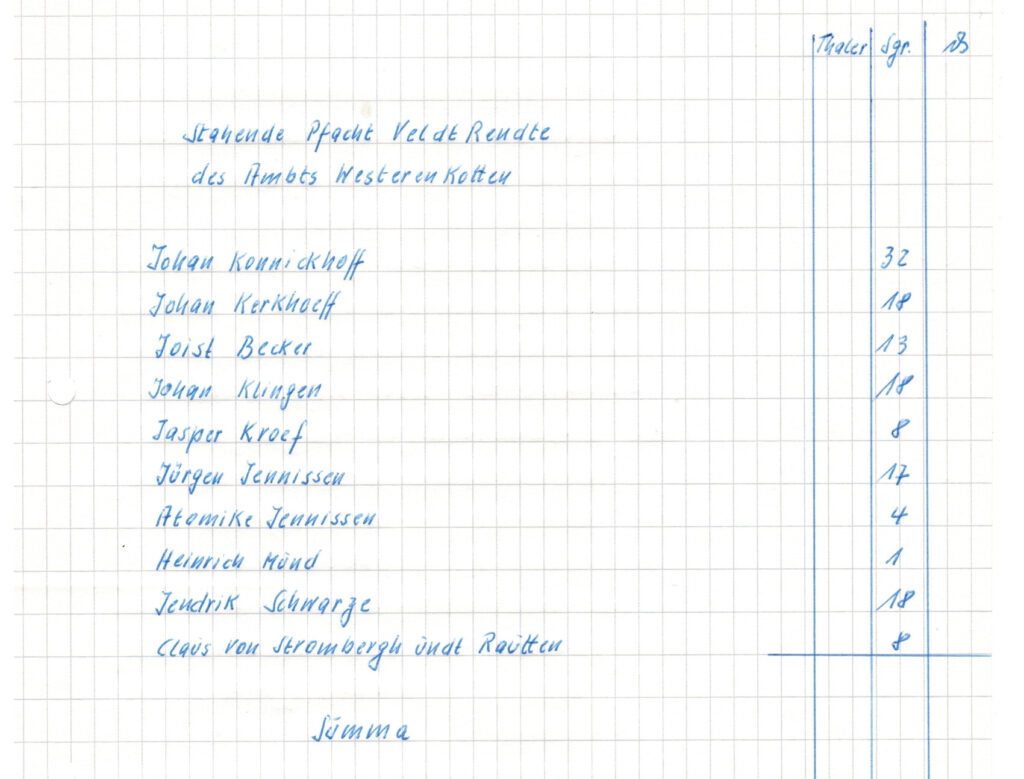 Thaler Sgr. ₰
Stahende Pfacht Veldt Rendte
des Ambts Westerenkotten
Johan Konnickhoff 32
Johan Kerkhoeff 18
Joist Becker 13
Johan Klingen 18
Jasper Kroef 8
Jürgen Jennissen 17
Atomike Jennissen 4
Heinrich Münd 1
Jendrik Schwarze 18
Claüs von Strombergh ündt Raütten 8
Sümma